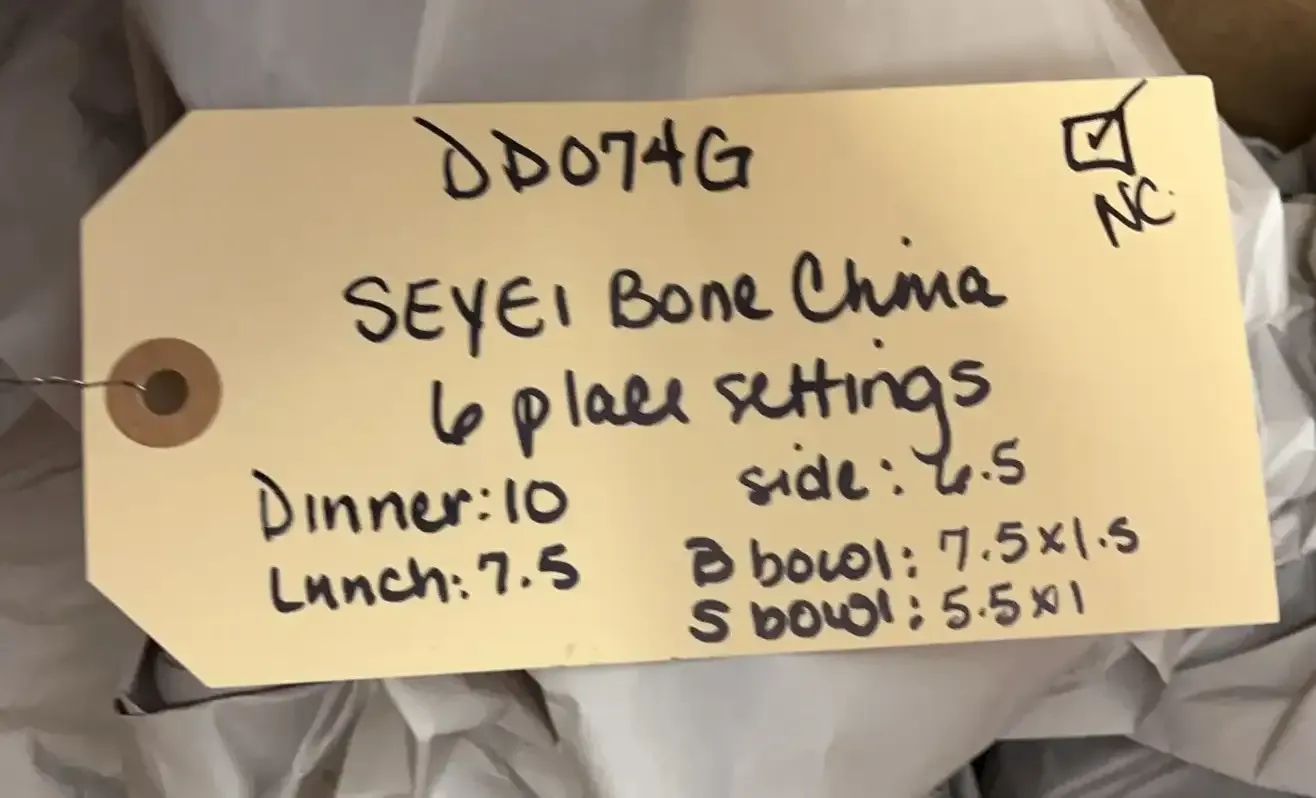 JD074G
NC.
SEYEI Bone China
6 place settings
Dinner: 10
side: 6.5
Lunch: 7.5
B bowl: 7.5x1.5
S bowl: 5.5x1